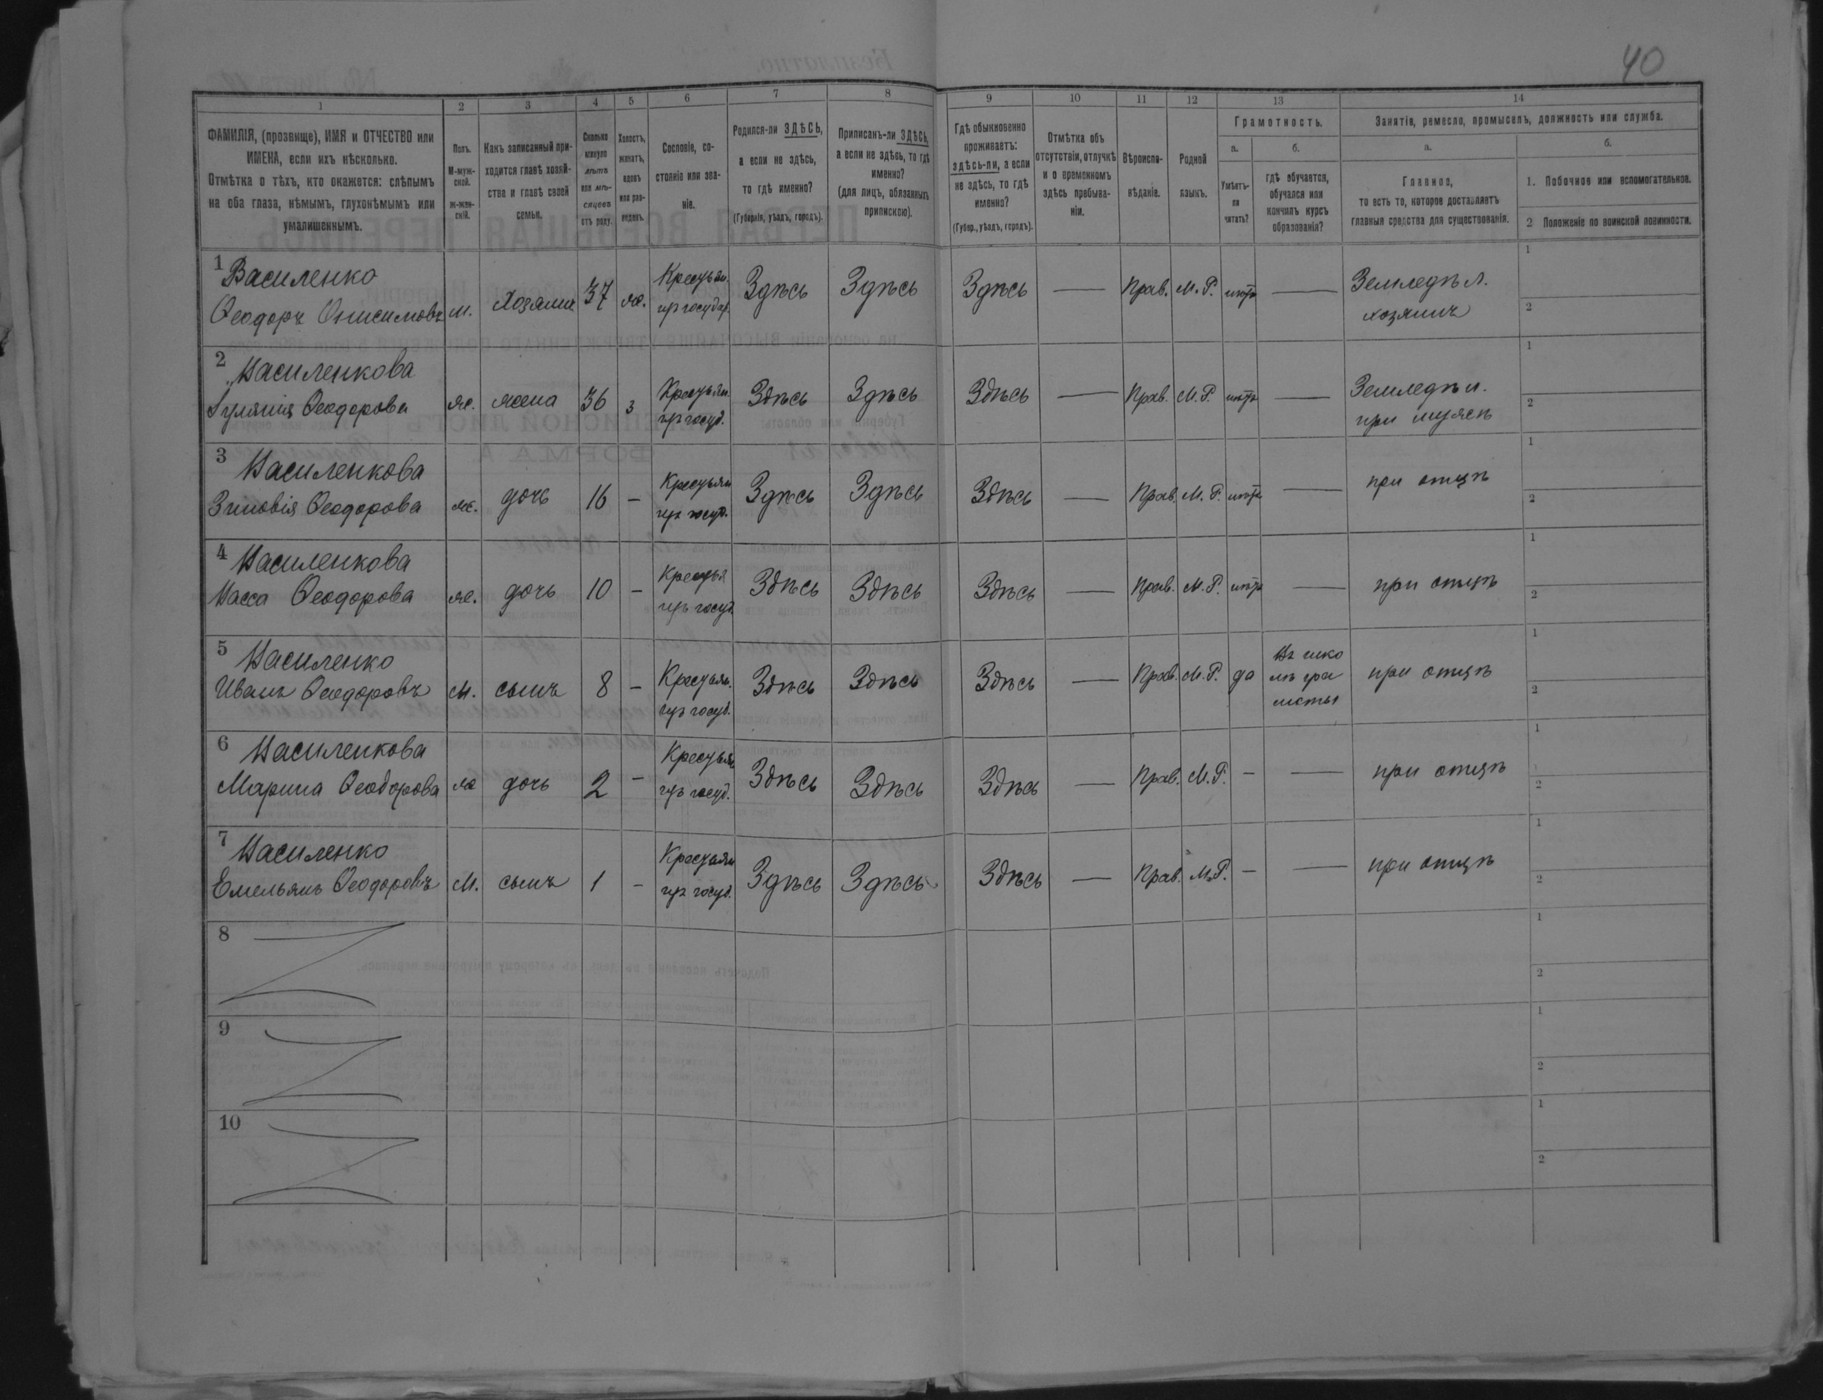 40
1 2 3 4 5 6 7 8 9 10 11 12 13 14
ФАМИЛІЯ, (прозвище), ИМЯ и ОТЧЕСТВО или
ИМЕНА, если ихъ нѣсколько.
Отмѣтка о тѣхъ, кто окажется: слѣпымъ
на оба глаза, нѣмымъ, глухонѣмымъ или
умалишеннымъ.
Полъ.
М-муж-
ской.
Ж-жен-
скій.
Какъ записанный при-
ходится главѣ хозяй-
ства и главѣ своей
семьи.
Сколько
минуло
лѣтъ
или мѣ-
сяцевъ
отъ роду.
Холостъ,
женатъ,
вдовъ
или раз-
веденъ.
Сословіе, со-
стояніе или зва-
ніе.
Родился-ли ЗДѢСЬ,
а если не здѣсь,
то гдѣ именно?
(Губернія, уѣздъ, городъ).
Приписанъ-ли ЗДѢСЬ,
а если не здѣсь, то гдѣ
именно?
(для лицъ, обязанныхъ
припискою).
Гдѣ обыкновенно
проживаетъ:
здѣсь-ли, а если
не здѣсь, то гдѣ
именно?
(Губер., уѣздъ, городъ).
Отмѣтка объ
отсутствіи, отлучкѣ
и о временномъ
здѣсь пребыва-
ніи.
Вѣроиспо-
вѣданіе.
Родной
языкъ.
Грамотность.
а.
Умѣетъ-
ли
читать?
б.
гдѣ обучается,
обучался или
кончилъ курсъ
образованія?
Занятіе, ремесло, промыселъ, должность или служба.
а.
Главное,
то есть то, которое доставляетъ
главныя средства для существованія.
б.
1. Побочное или вспомогательное.
2 Положеніе по воинской повинности.
1 Василенко
Ѳеодоръ Онисимовъ м. хозяинъ 37 ж. Крестьян. Здѣсь Здѣсь Здѣсь — Прав. М.Р. — Земледѣл.
хозяинъ
2 Василенкова
Ѳеодорова ж. жена 36 з Здѣсь Здѣсь Здѣсь — Прав. М.Р. — Земледѣл.
при мужѣ
3 Василенкова
Зиновія Ѳеодорова ж. дочь 16 — Здѣсь Здѣсь Здѣсь — Прав. М.Р. — при отцѣ
4 Василенкова
Васса Ѳеодорова ж. дочь 10 — Здѣсь Здѣсь Здѣсь — Прав. М.Р. — при отцѣ
5 Василенко
Иванъ Ѳеодоровъ М. сынъ 8 — Здѣсь Здѣсь Здѣсь — Прав. М.Р. да Въ шко
лѣ гра
моты при отцѣ
6 Василенкова
Марина Ѳеодорова ж дочь 2 — Здѣсь Здѣсь Здѣсь — Прав. М.Р. — — при отцѣ
7 Василенко
Емельянъ Ѳеодоровъ М. сынъ 1 — Здѣсь Здѣсь Здѣсь — Прав. М.Р. — — при отцѣ
8
9
10